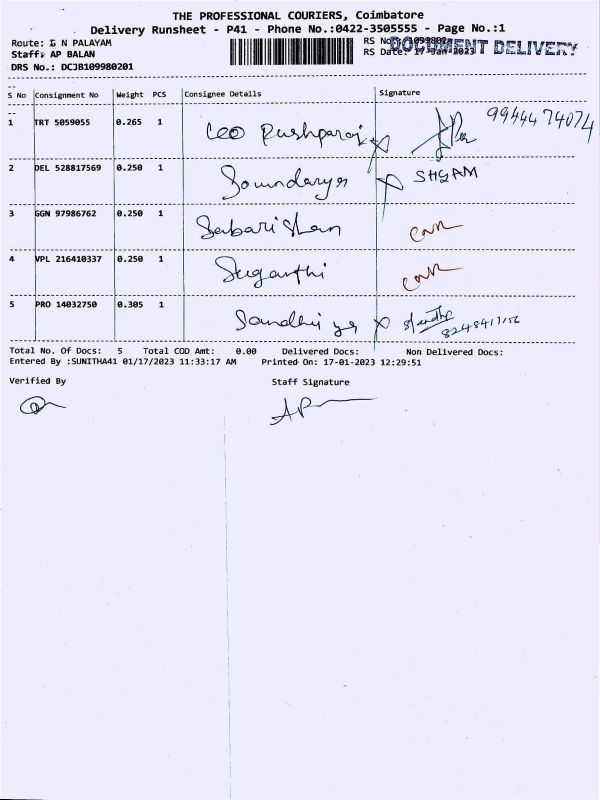 THE PROFESSIONAL COURIERS, Coimbatore
Delivery Runsheet - P41 - Phone No.:0422-3505555 - Page No.:1
Route: G N PALAYAM
Staff: AP BALAN
DRS No.: DCJB109980201
RS No.:
RS Date: 17-Jan-2023
DOCUMENT DELIVERY
S No Consignment No Weight PCS Consignee Details Signature
1 TRT 5059055 0.265 1 Leo Pushparaj 99444 74074
2 DEL 528817569 0.250 1 Soundarya SHYAM
3 GGN 97986762 0.250 1 Sabarishan
4 VPL 216410337 0.250 1 Suganthi
5 PRO 14032750 0.305 1 Sandhiya
Total No. Of Docs: 5 Total COD Amt: 0.00 Delivered Docs: Non Delivered Docs:
Entered By :SUNITHA41 01/17/2023 11:33:17 AM Printed On: 17-01-2023 12:29:51
Verified By Staff Signature